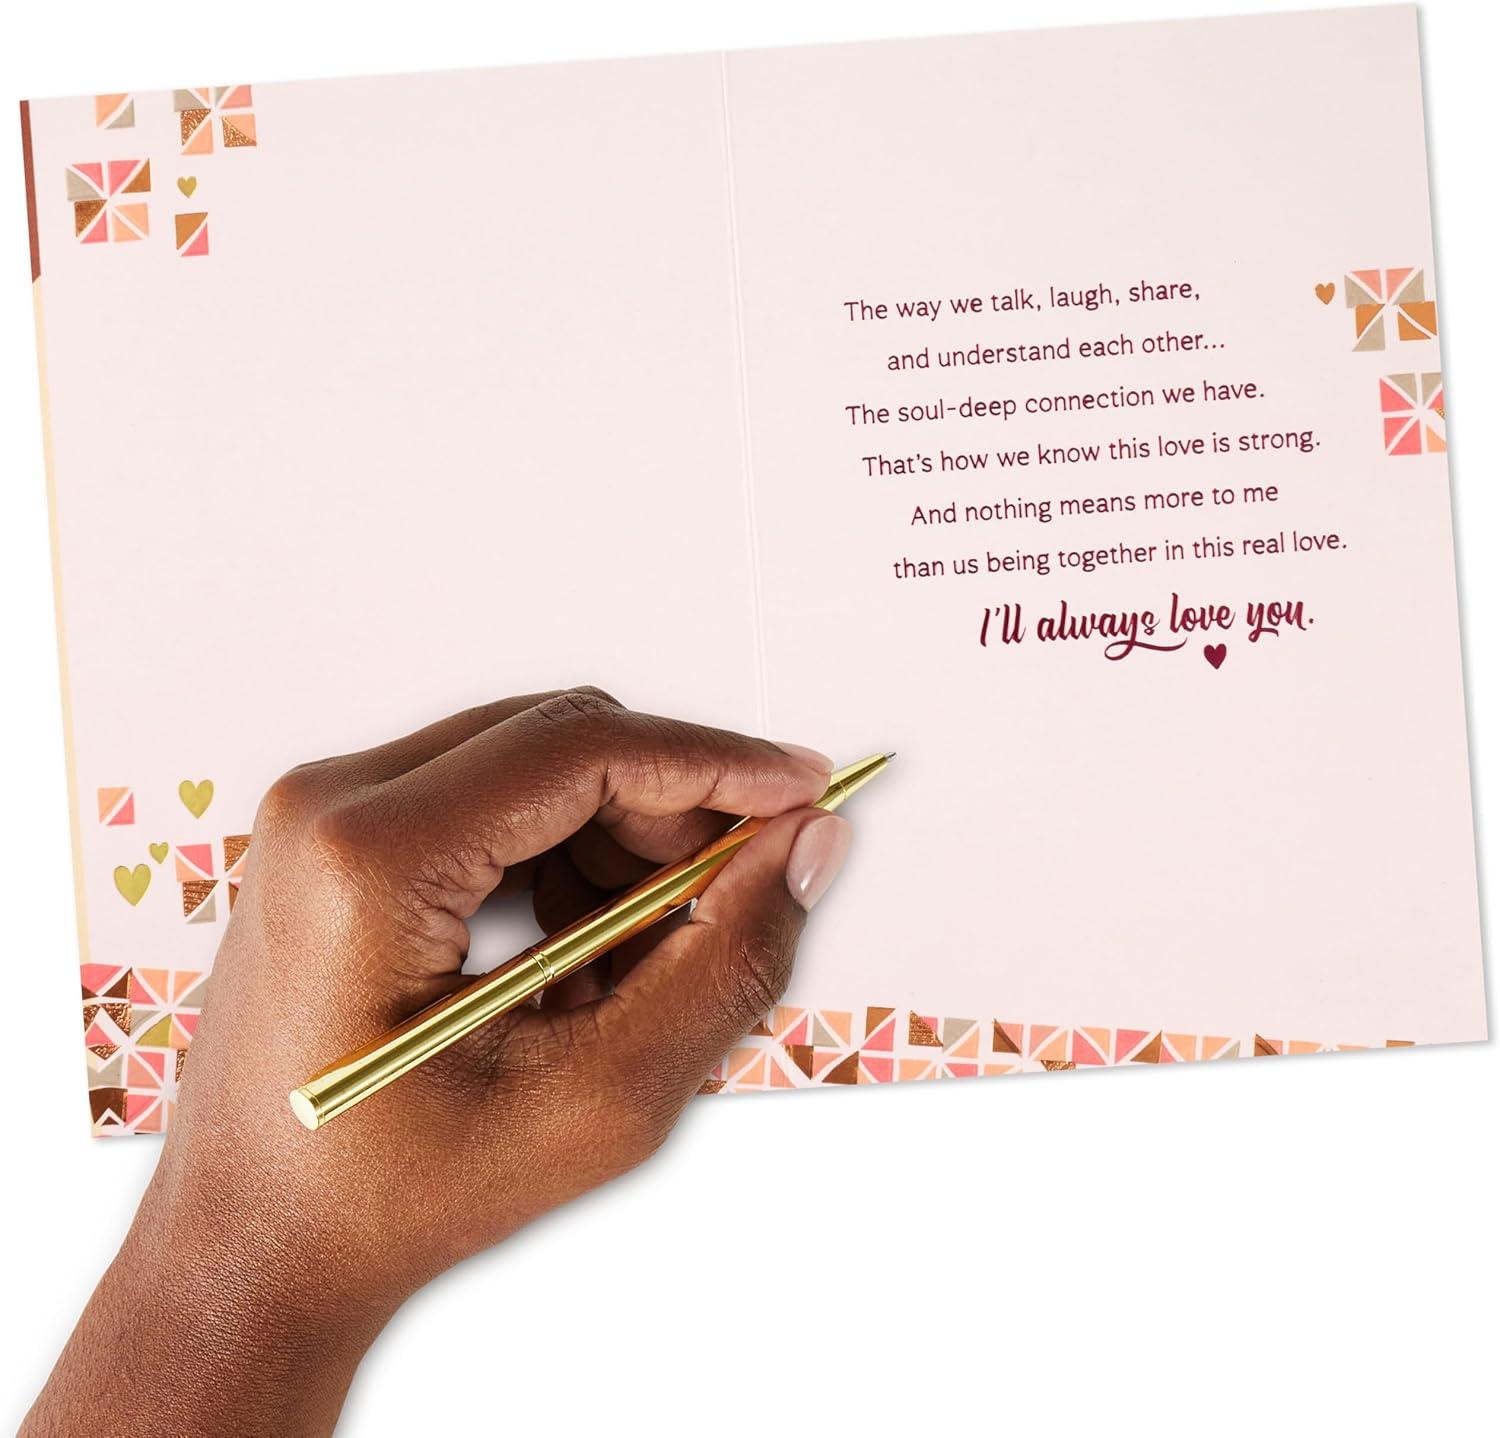 The way we talk, laugh, share,
and understand each other...
The soul-deep connection we have.
That's how we know this love is strong.
And nothing means more to me
than us being together in this real love.
I'll always love you.